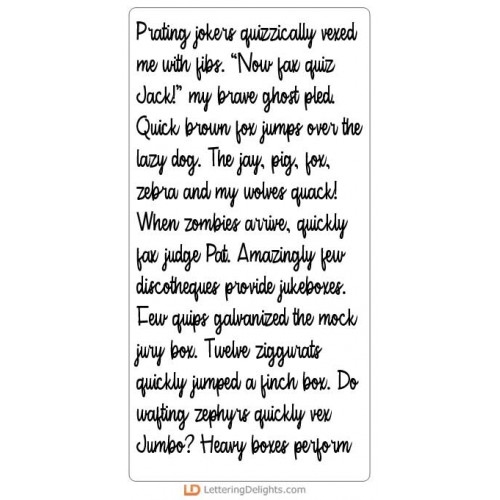 Prating jokers quizzically vexed
me with fibs. “Now fax quiz
Jack!” my brave ghost pled.
Quick brown fox jumps over the
lazy dog. The jay, pig, fox,
zebra and my wolves quack!
When zombies arrive, quickly
fax judge Pat. Amazingly few
discotheques provide jukeboxes.
Few quips galvanized the mock
jury box. Twelve ziggurats
quickly jumped a finch box. Do
wafting zephyrs quickly vex
Jumbo? Heavy boxes perform
LD LetteringDelights.com